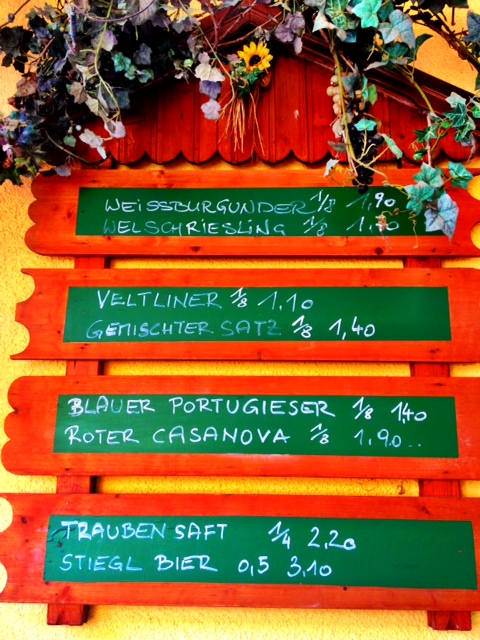 WEISSBURGUNDER 1/8 1,90
WELSCHRIESLING 1/8
VELTLINER 1/8 1,10
GEMISCHTER SATZ 1/8 1,40
BLAUER PORTUGIESER 1/8 1,40
ROTER CASANOVA 1/8 1,90..
TRAUBENSAFT 1/4 2,20
STIEGL BIER 0,5 3,10